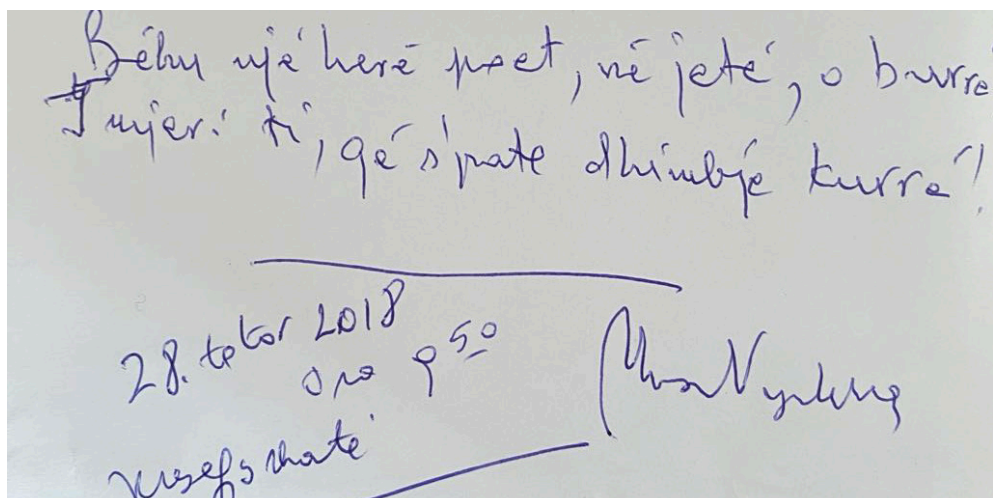 Bëhu një herë poet, në jetë, o burrë
I mjeri ti, që s'pate dhimbje kurrë!
28. tetor 2018
ora 9 50